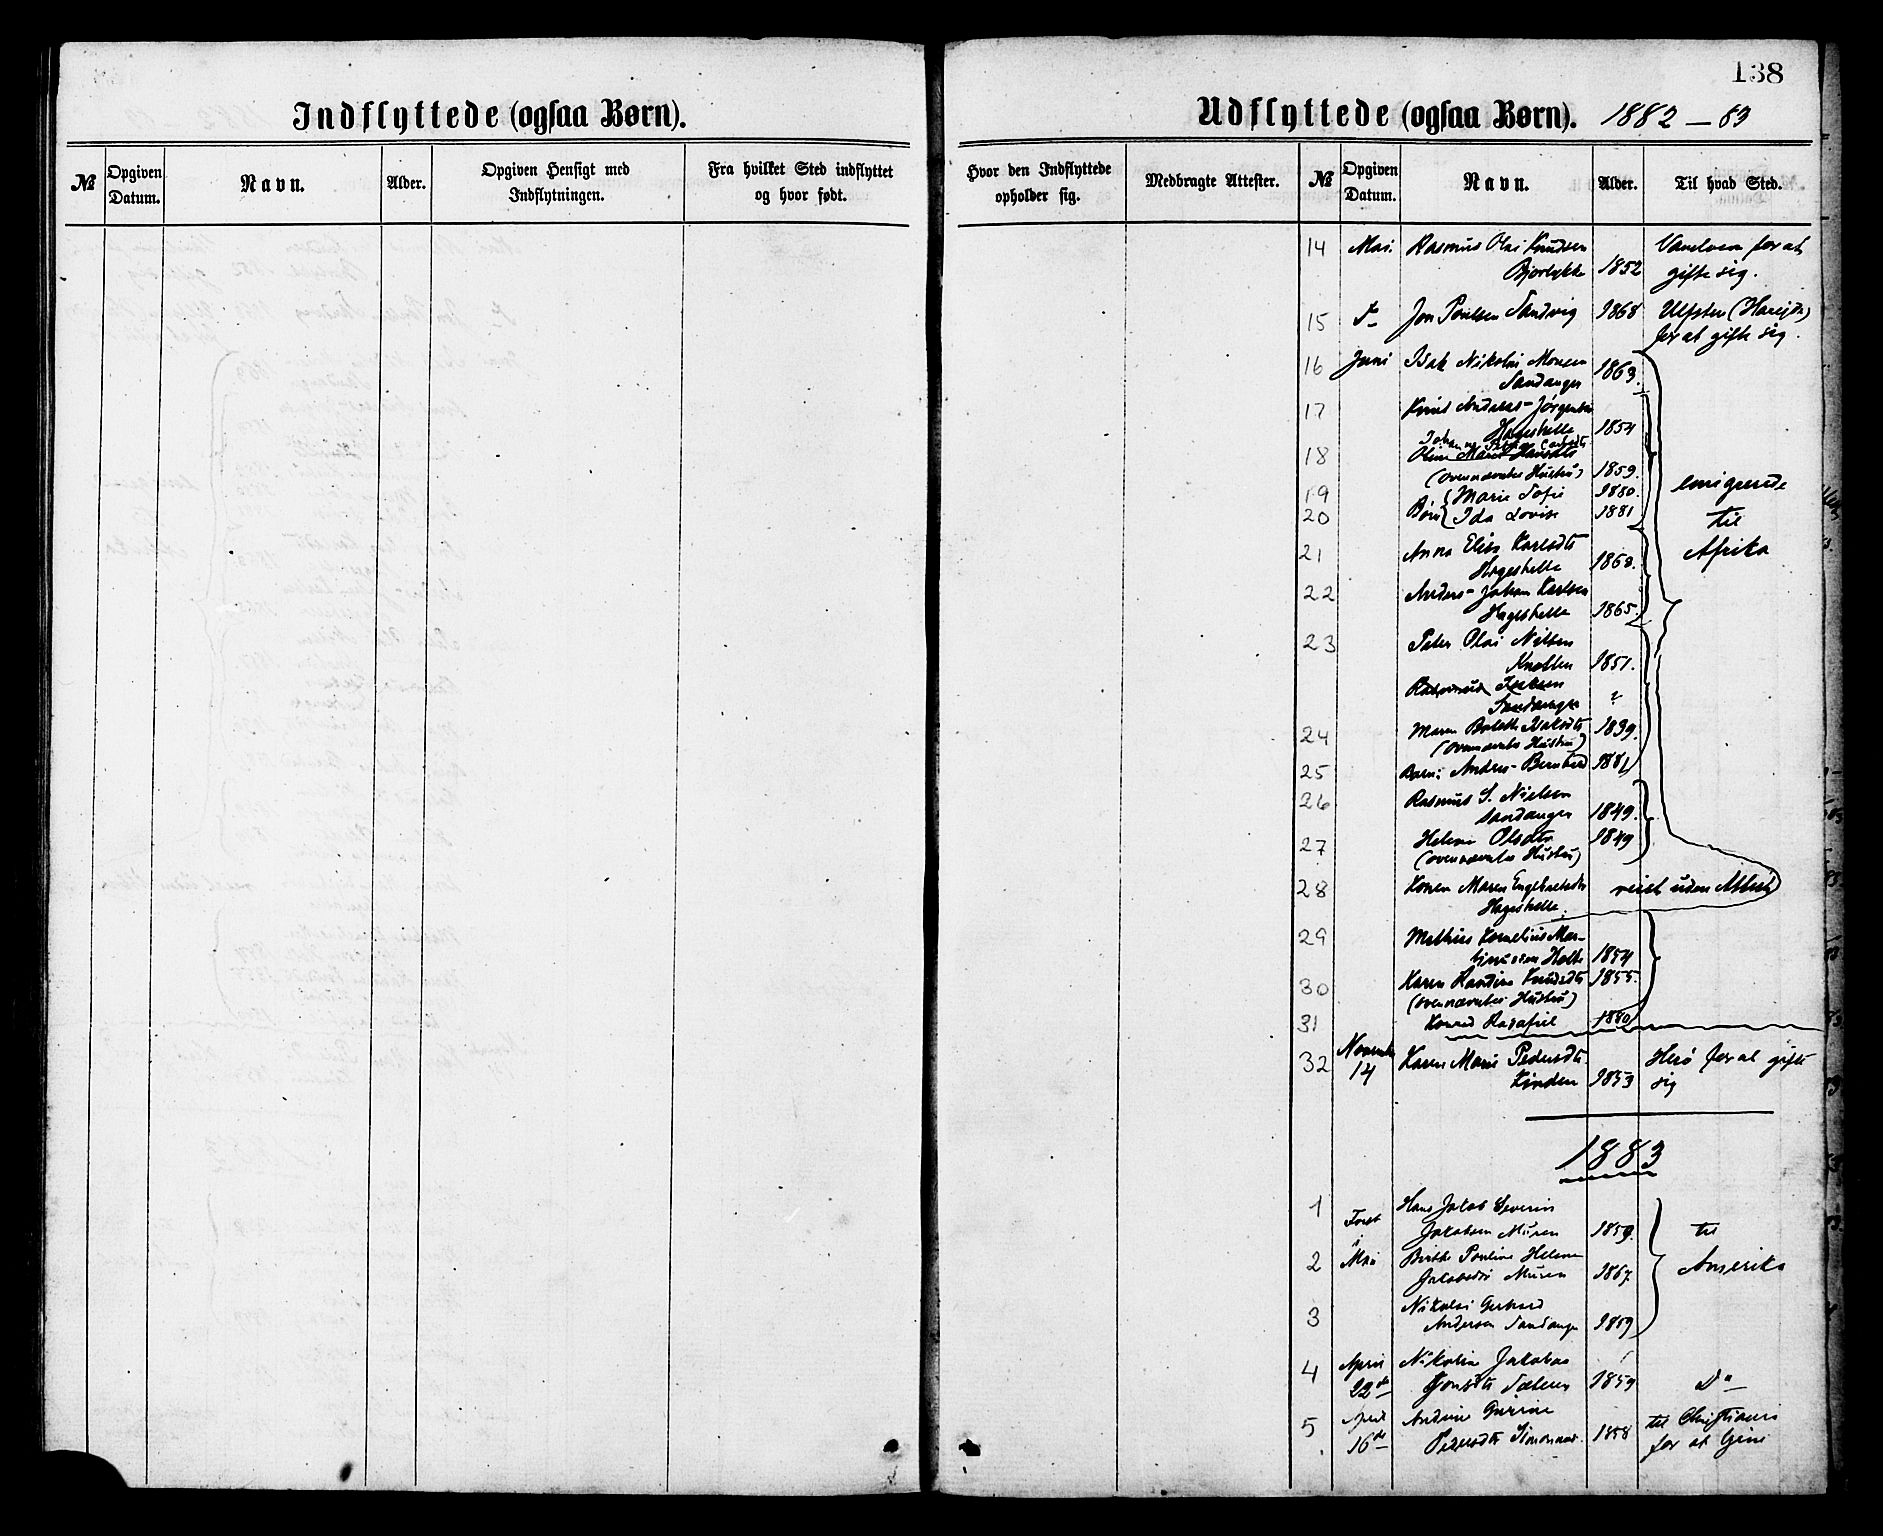 138
Indflyttede (ogsaa Børn).
№
Opgiven Datum.
Navn.
Alder.
Opgiven Hensigt med Indflytningen.
Fra hvilket Sted indflyttet og hvor født.
Udflyttede (ogsaa Børn). 1882-83
Hvor den Indflyttede opholder sig.
Medbragte Attester.
№
Opgiven Datum.
Navn.
Alder.
Til hvad Sted.
14 Mai. Rasmus Olai Knudsen Vanelven for at
Bjørlykke 1852 gifte sig.
15 Do Jon Poulsen Sandvig 1868 Ulfsten (Hareids)
for at gifte sig.
16 Juni Isak Nikolai Monsen
Sandanger 1863.
17 Knud Andreas Jørgensen
Hageskelle 1854
Johanne Petrine Carlsdtr
18 Oline Marie Hansdtr
(ovennævntes Hustru) 1859.
19 Marie Sofie 1880.
20 Børn Ida Lovise 1881
emigrerede
til
Afrika
21 Anna Elisa Karlsdtr
Hageskelle 1863.
22 Anders Johan Karlsen
Hageskelle 1865.
23 Peter Olai Nilsen
Knotten 1851.
Rasmus Isaksen
Sandanger ?
24 Maren Bolette Isaksdtr 1839.
(ovennævntes Hustru)
25 Barn: Anders Bernhard 1881
26 Rasmus S. Nielsen
Sandanger 1849.
27 Helene Olsdtr 1849
(ovennævntes Hustru)
28 Konen Maren Engebretsdtr reist uden Attest
Hageskelle
29 Mathias Kornelius Mar-
tinussen Holte 1854
30 Karen Randine Knudsdtr 1855.
(ovennævntes Hustru)
31 Konrad Rasafiel 1880
32 November Karen Marie Pedersdtr Herö for at gifte
14 Kinden 1853 sig
1883
1 Hans Jakob Severin
Jakobsen Muren 1859. til
2 Mai Birthe Pauline Helene Amerika
Jakobsdtr Muren 1867.
3 Nikolai Gerhard
Andersen Sandanger 1859
4 April Nikolia Jakobea
22de Jonsdtr Sæteren 1859 Do
5 April Andrine Gurine til Christiania
16de Pedersdtr Simonnes. 1858 for at tjene